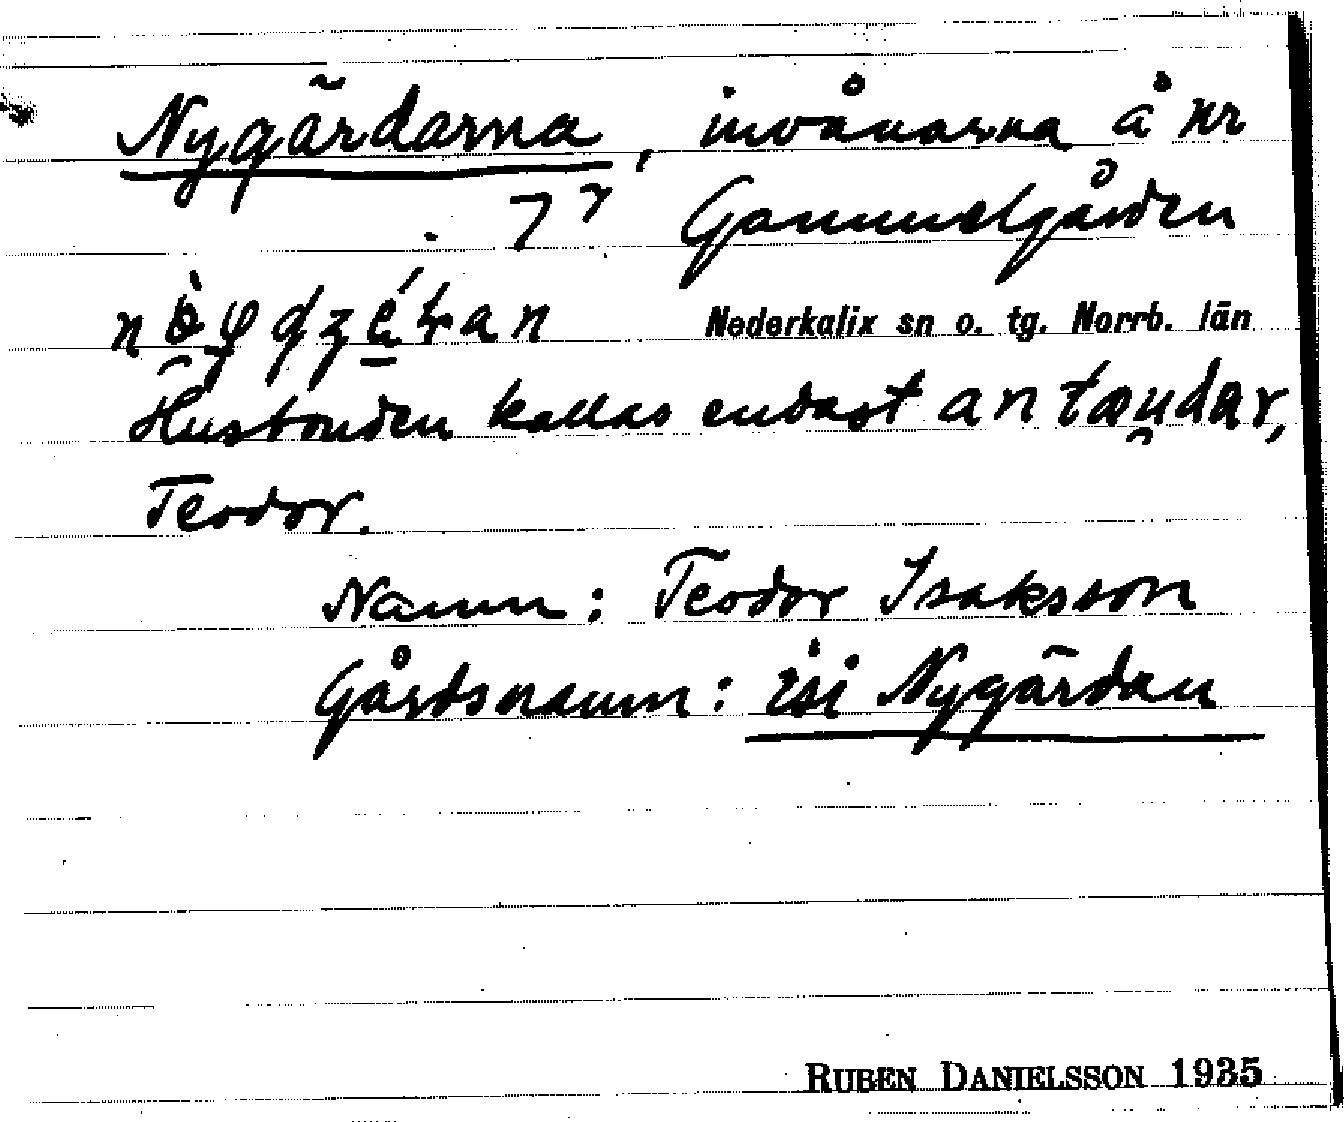 Nygärdarna, invånarna å nr
7⁷ Gammelgården
Nederkalix sn o. tg. Norrb. län
Husbonden kallas endast an tæudar,
Teodor.
Namn: Teodor Isaksson
Gårdsnamn: isi Nygärdan
RUBEN DANIELSSON 1935